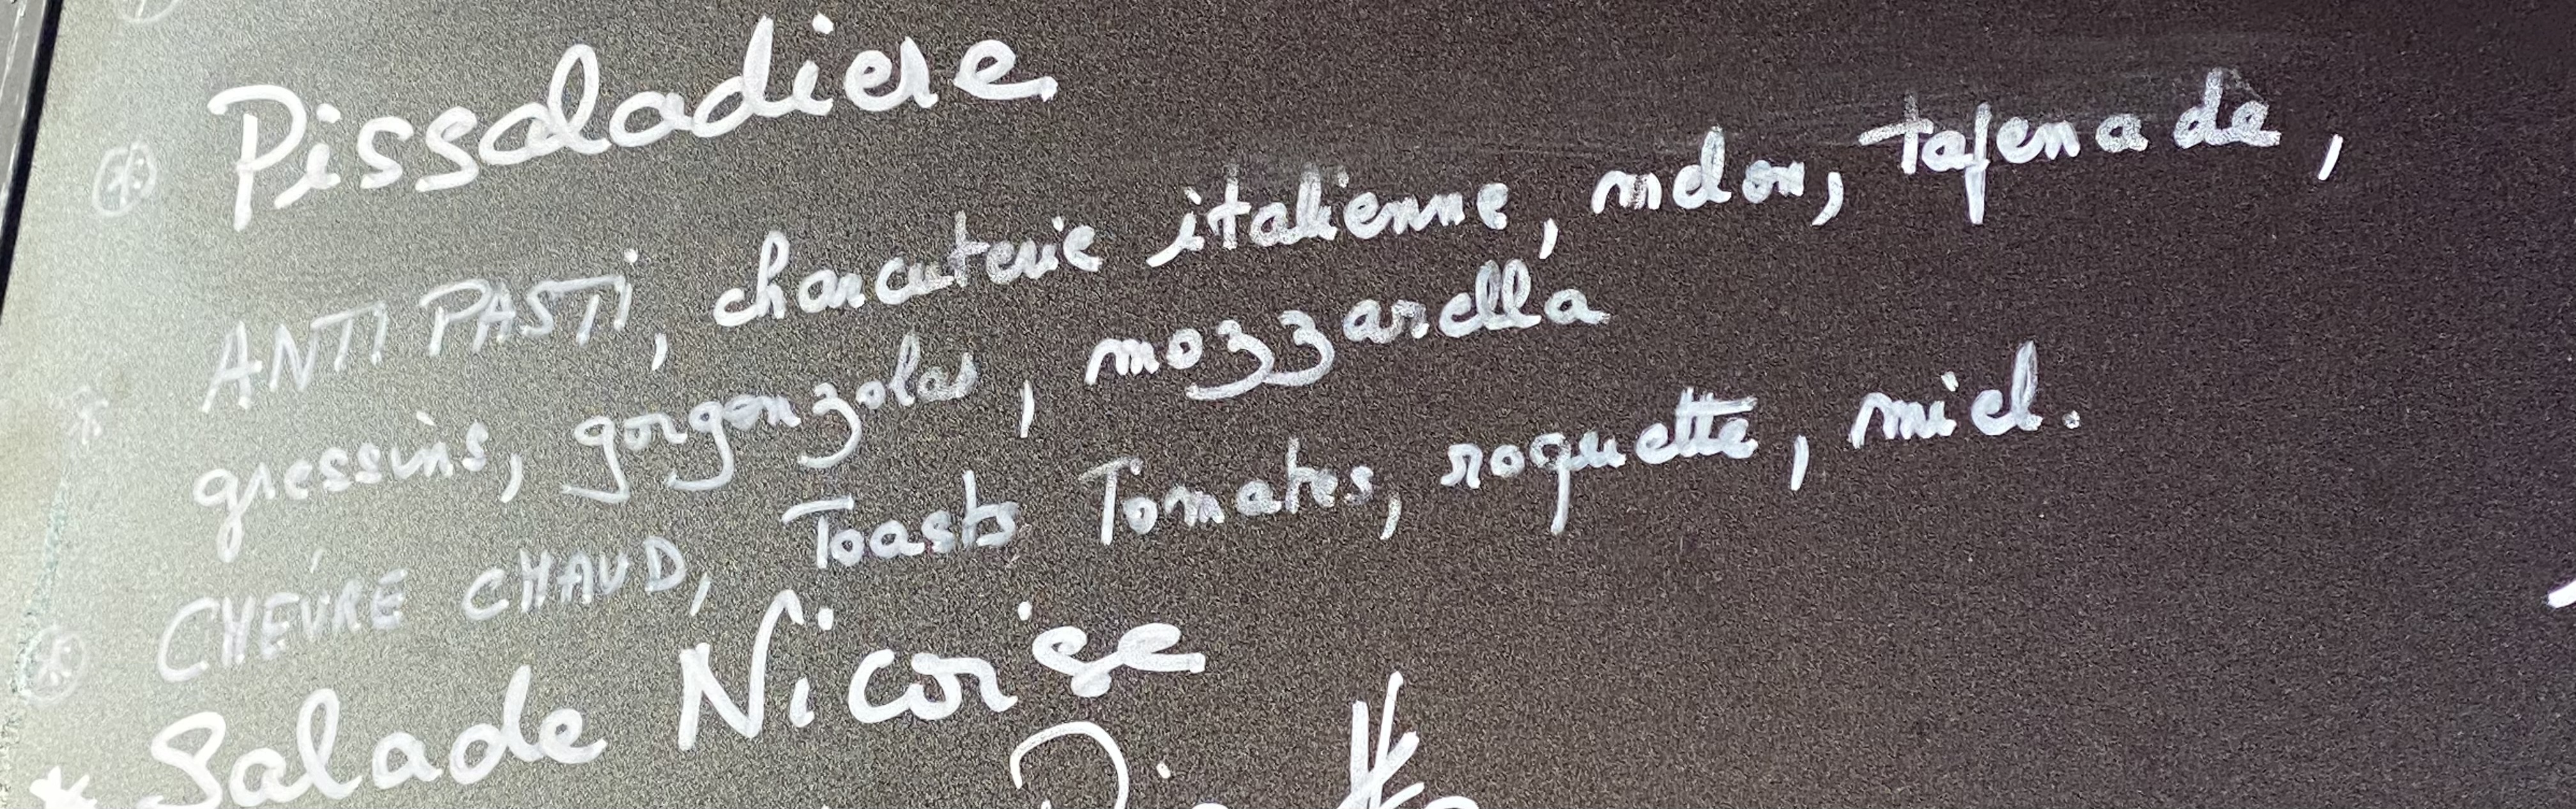 Pissaladiere
ANTI PASTI, charcuterie italienne, melon, tapenade,
gressins, gorgonzolas, mozzarella
CHEVRE CHAUD, Toasts Tomates, roquette, miel.
* Salade Nicoise